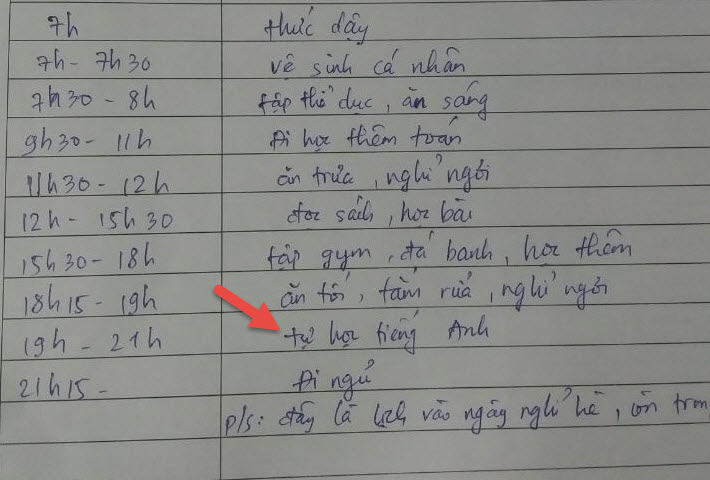 7h thức dậy
7h - 7h30 vệ sinh cá nhân
7h30 - 8h tập thể dục, ăn sáng
9h30 - 11h Đi học thêm toán
11h30 - 12h ăn trưa, nghỉ ngơi
12h - 15h30 đọc sách, học bài
15h30 - 18h tập gym, đá banh, học thêm
18h15 - 19h ăn tối, tắm rửa, nghỉ ngơi
19h - 21h tự học tiếng Anh
21h15 - Đi ngủ
p/s: đây là lịch vào ngày nghỉ hè, còn tron